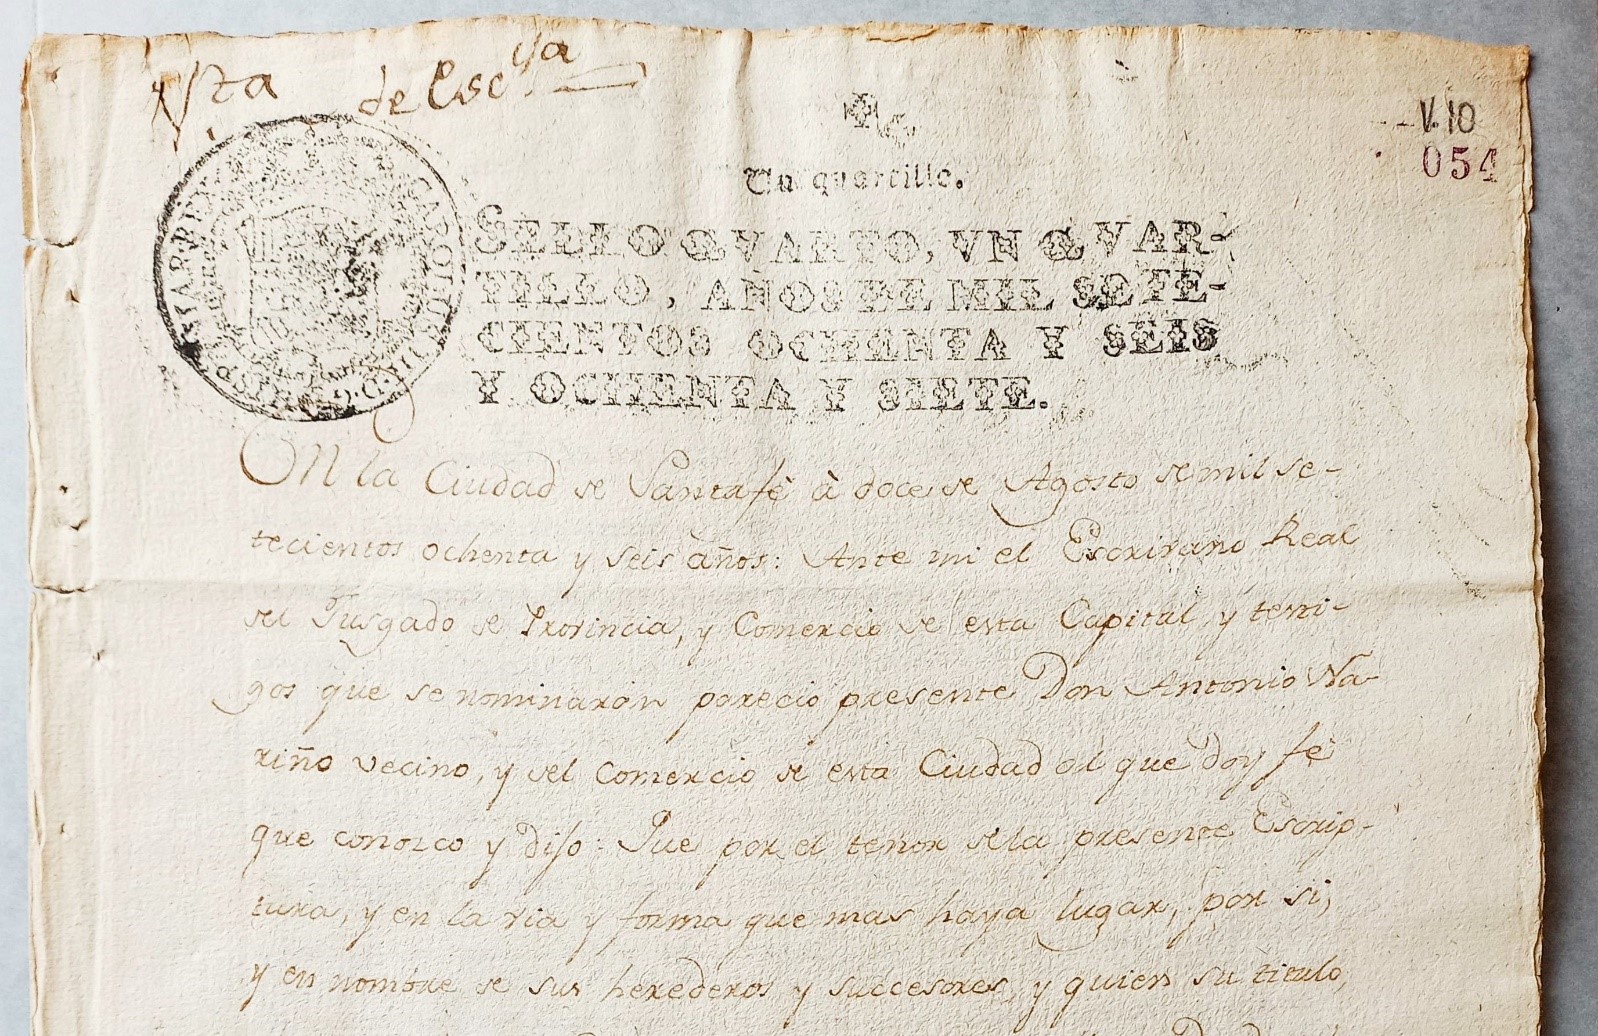 Vsta de Escrª
V. 10
054
Un quartillo.
SELLO QVARTO, VN QVAR-
TILLO, AÑOS DE MIL SETE-
CIENTOS OCHENTA Y SEIS
Y OCHENTA Y SIETE.
CAROLUS III D. G.
HISP ET IAR REX
En la Ciudad de Santafé à doce de Agosto de mil se-
tecientos ochenta y seis años: Ante mi el Escrivano Real
del Jusgado de Provincia, y Comercio de esta Capital y testi-
gos que se nominarán parecio presente Don Antonio Na-
riño vecino, y del Comercio de esta Ciudad al que doy fé
que conozco y dijo: Que por el tenor dela presente Escrip-
tura, y en la via y forma que mas haya lugar, por si,
y en nombre de sus herederos y successores, y quien su titulo,